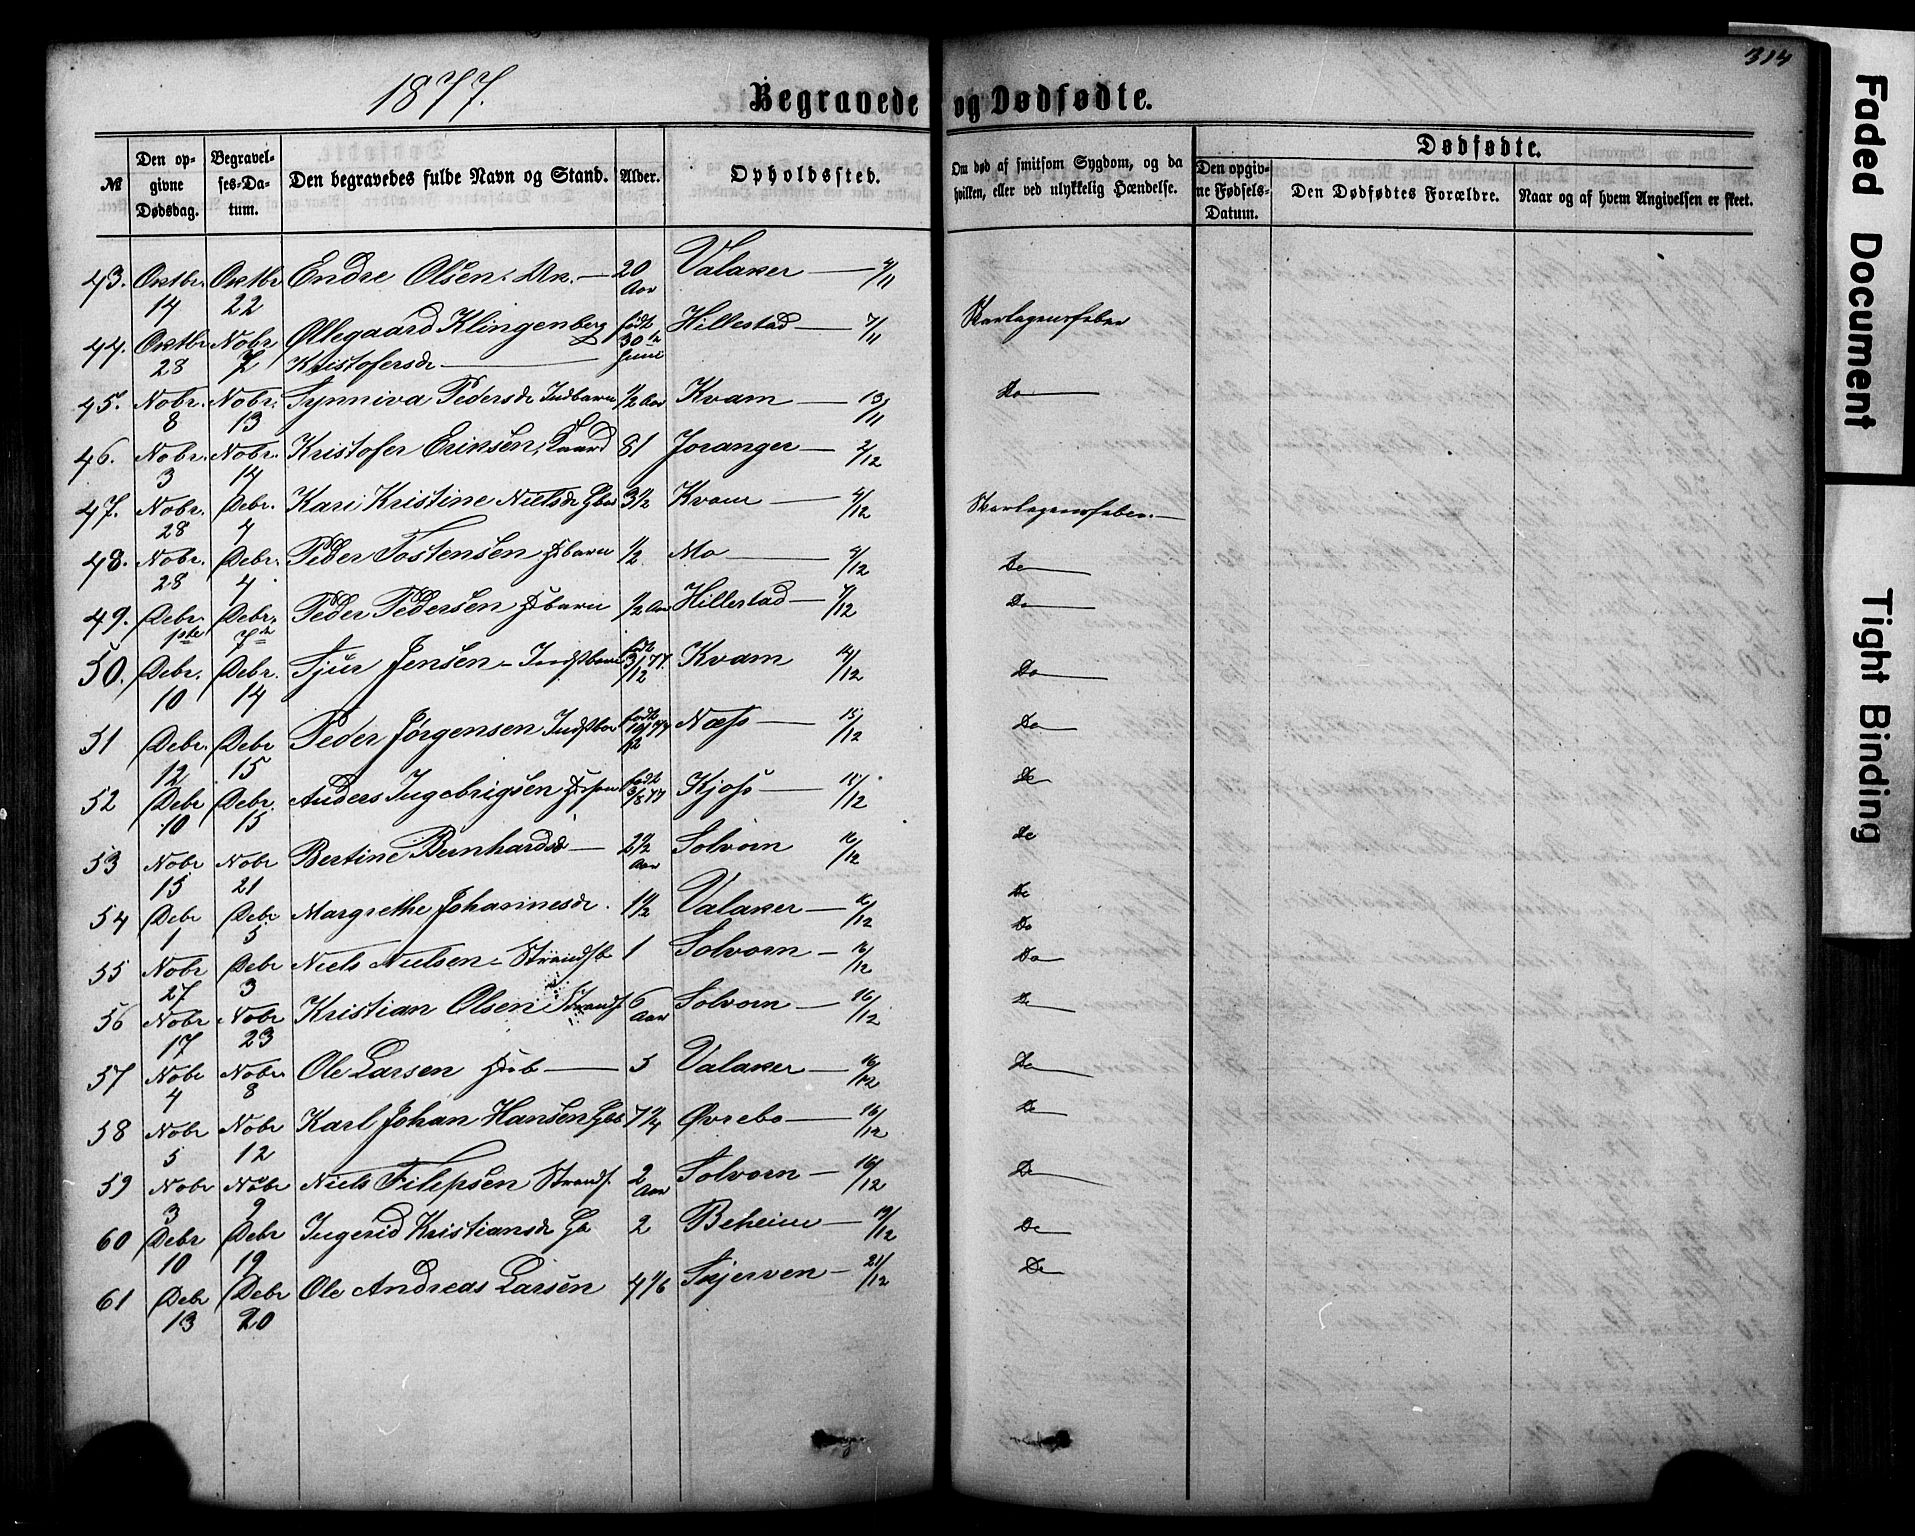 314
1877.
Begravede og Dødfødte.
№
Den op-
givne
Dødsdag.
Begravel-
ses-Da-
tum.
Den begravedes fulde Navn og Stand.
Alder.
Opholdssted.
Om død af smitsom Sygdom, og da
hvilken, eller ved ulykkelig Hændelse.
Dødfødte.
Den opgiv-
ne Fødsels-
Datum.
Den Dødfødtes Forældre.
Naar og af hvem Angivelsen er skeet.
43. Oktbr. 14 Oktbr 22 Endre Olsen, Uk. — 20 Aar Valaker — 4/11
44. Oktbr 28 Nobr 7 Øllegaard Klingenberg Kristofersdr — født 30te Juni Hillestad — 7/11 Skarlagensfeber
45. Nobr. 8 Nobr. 13 Synniva Pedersdr Indbarn 1/2 Aar Kvam — 13/11 Do
46. Nobr. 3 Nobr. 14 Kristofer Eriksen, Kaard 81 Joranger — 2/12
47. Nobr. 28 Debr. 4 Kari Kristine Nielsdr Gbar 3 1/2 Kvam — 4/12 Skarlagensfeber. —
48. Nobr. 28 Debr. 4 Peder Tostensen Hsbarn 1/2 Mo — 4/12 Do
49. Debr. 1ste Debr. 7de Peder Pedersen Hsbarn 1/2 Aar Hillestad — 7/12 Do
50. Debr. 10 Debr. 14 Sjur Jensen — Indstbarn født 3/12 77 Kvam 14/12 Do
51 Debr. 12 Debr 15 Peder Jørgensen Indstbar født 10/2 77 Næss — 15/12 Do
52 Debr 10 Debr. 15 Anders Ingebrigsen født 3/8 77 Kjoss — 15/12 Do
53 Nobr 15 Nobr 21 Bertine Bernhardsd — 2 1/2 Aar Solvorn 16/12 Do
54 Debr 1 Debr 5 Margrethe Johannesdr. 1 1/2 Valaker — 16/12 Do
Do
55 Nobr 27 Debr 3 Niels Nielsen — Strandsb 1 Solvorn — 16/12 Do
56 Nobr 17 Nobr 23 Kristian Olsen Strands. 6 Aar Solvorn — 16/12 Do
57 Nobr 4 Nobr 8 Ole Larsen Hsb — 5 Valaker — 16/12 Do
58 Nobr 5 Nobr 12 Karl Johan Hansen Gb 7 1/4 Øvrebo — 16/12 Do
59 Nobr 3 Nobr 9 Niels Filipsen Strands. 2 Aar Solvorn — 16/12 Do
60 Debr 10 Debr 19 Ingerid Kristiansdr Gb 2 Beheim — 19/12 Do
61 Debr 13 Debr 20 Ole Andreas Larsen 4 1/6 Skjerven — 21/12 Do
Faded Document
Tight Binding